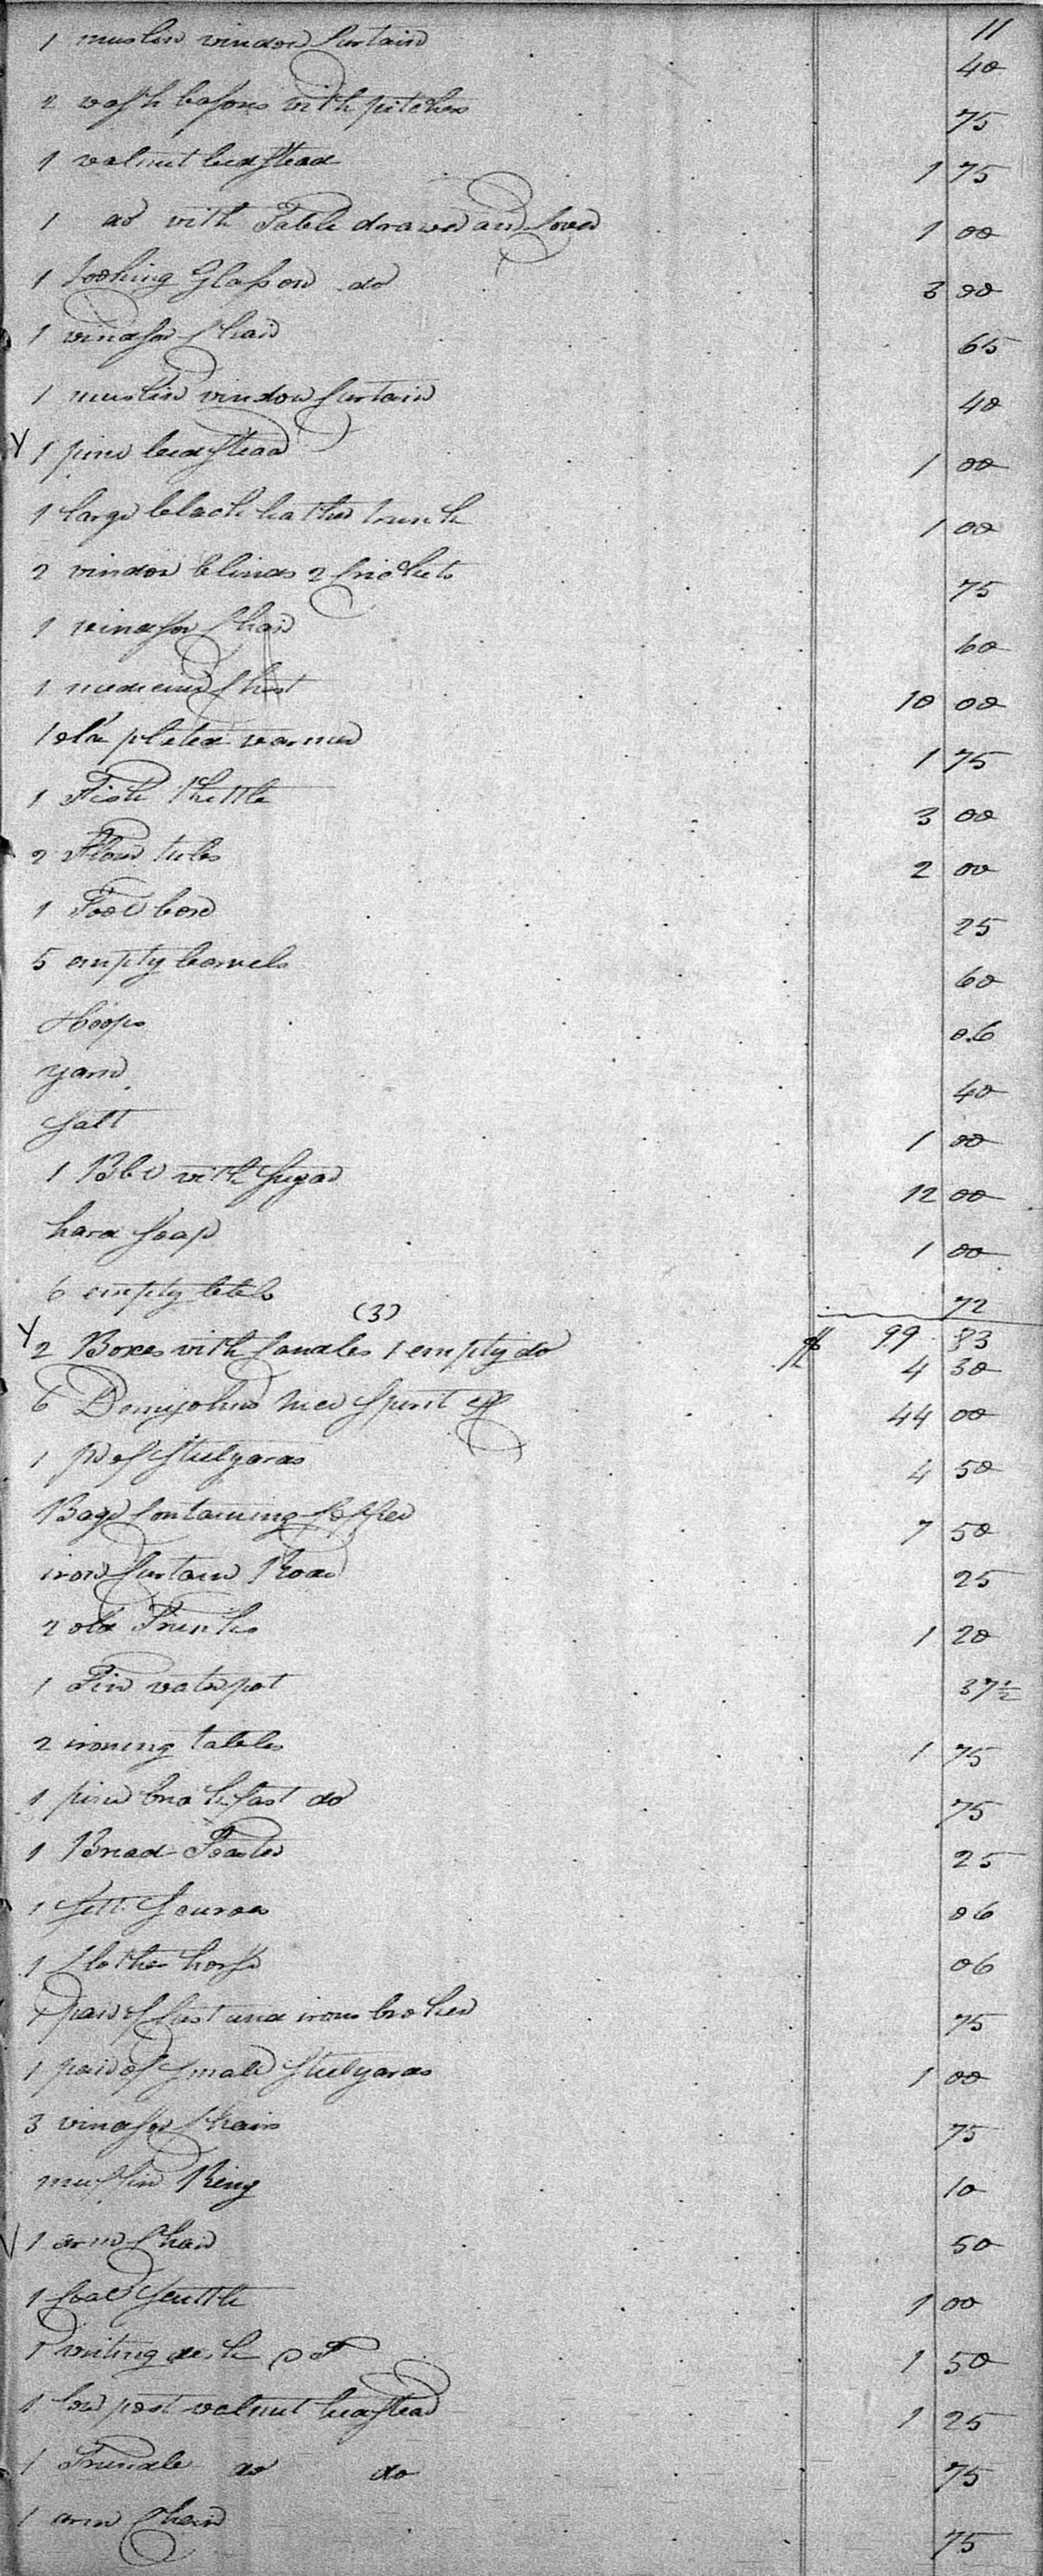 11
1 muslin window Curtain 40
2 wash basons with pitchers 75
1 walnut bedstead 1 75
1 do with Table drawer and Cover 1 00
1 Looking Glass on do 3 00
1 windsor Chair 65
1 muslin window Curtain 40
1 pine bedstead 1 00
1 large black leather trunk 1 00
2 window blinds 2 Crickets 75
1 windsor Chair 60
1 medicine Chest 10 00
1 old plated warmer 1 75
1 Fish Kettle 3 00
2 Flour tubs 2 00
1 Tool box 25
5 empty barrels 60
Hoops 06
yarn 40
Salt 1 00
1 Bbl with Sugar 12 00
hard Soap 1 00
6 empty bbls 72
(3)
$ 99 83
2 Boxes with Candles 1 empty do 4 30
6 Demijohns Spirit 44 00
1 pr of Steelyards 4 50
Bags Containing Coffee 7 50
iron Curtain Road 25
2 old Trunks 1 20
1 Tin water pot 37 1/2
2 ironing tables 1 75
1 pine breakfast do 75
1 Bread Toaster 25
1 Sett 06
1 Clothes horse 06
1 pair of Cast and irons broken 75
1 pair of Small Steelyards 1 00
3 windsor Chairs 75
muffin Ring 10
1 arm Chair 50
1 Coal Scuttle 1 00
1 writing desk 1 50
1 low post walnut bedstead 1 25
1 Trundle do do 75
1 arm Chair 75